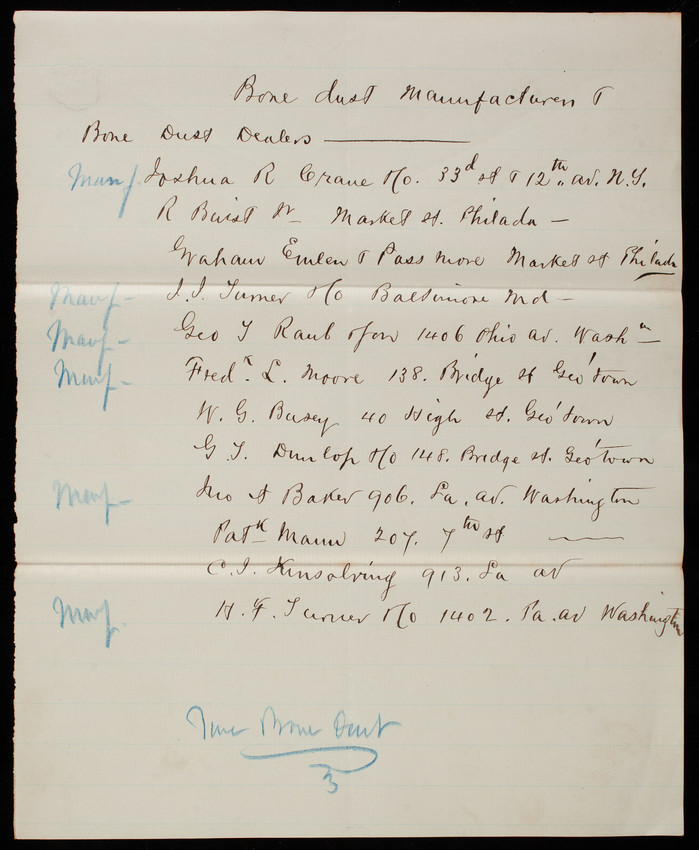 Bone dust Manufacturers &
Bone Dust Dealers
Manf. Joshua R Crane No. 33d st & 12th av. N.Y.
R Buist Jr Market st. Philada
Graham Emlen & Passmore Market st Philada
Manf J. J. Turner &Co Baltimore Md
Manf Geo T Raub 1406 Ohio av. Washn
Manf Fredk. L. Moore 138. Bridge st Geo'town
W. G. Busey 40 High st. Geo'town
G T. Dunlop &Co 148. Bridge st. Geo'town
Manf Jno A Baker 906. La. av. Washington
Patk Mann 207. 7th st
C. J. Kinsolving 913. La av
Manf. H. F. Turner &Co 1402. Pa. av Washington
Bone Dust
3